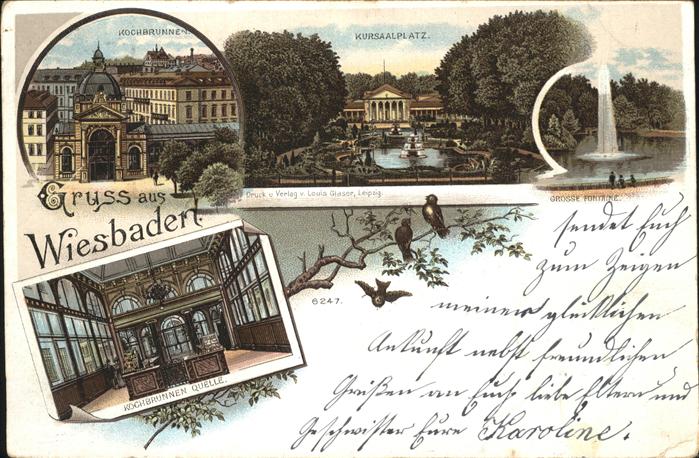 KOCHBRUNNEN.
KURSAALPLATZ.
Druck u Verlag v. Louis Glaser, Leipzig.
GROSSE FONTAINE.
Gruss aus
Wiesbaden.
6247.
KOCHBRUNNEN QUELLE.
sendet Euch
zum Zeigen
meiner glücklichen
Ankunft nebst freundlichen
Grüßen an Euch liebe Eltern und
Geschwister Eure Karoline.